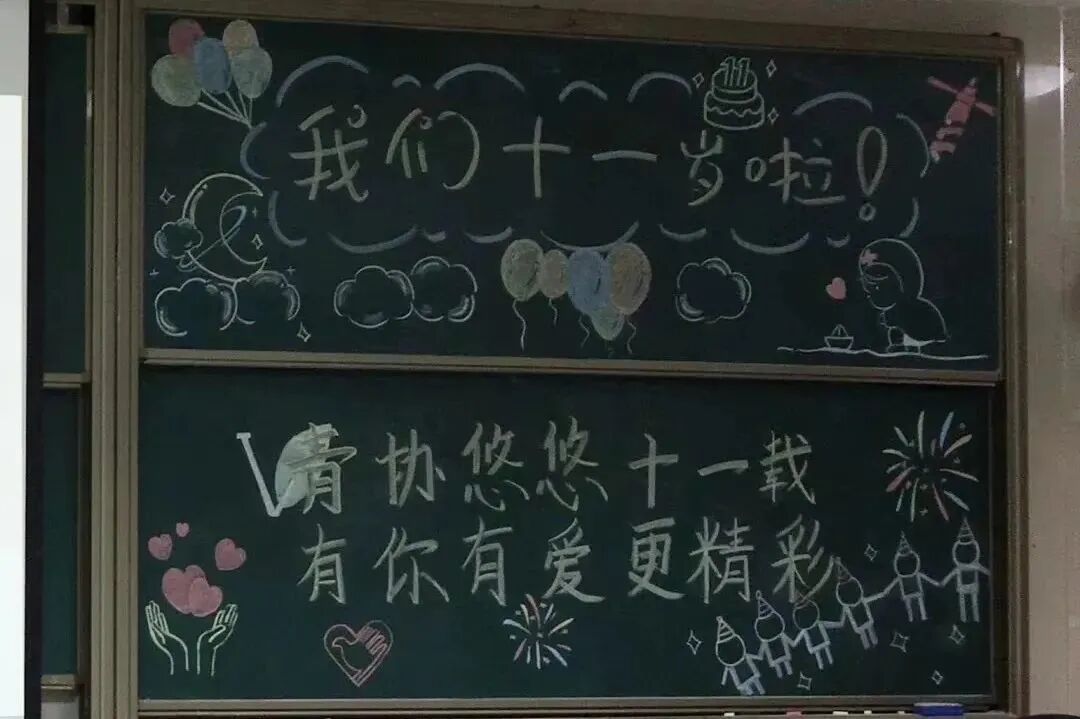 11
我们十一岁啦!
青协悠悠十一载
有你有爱更精彩